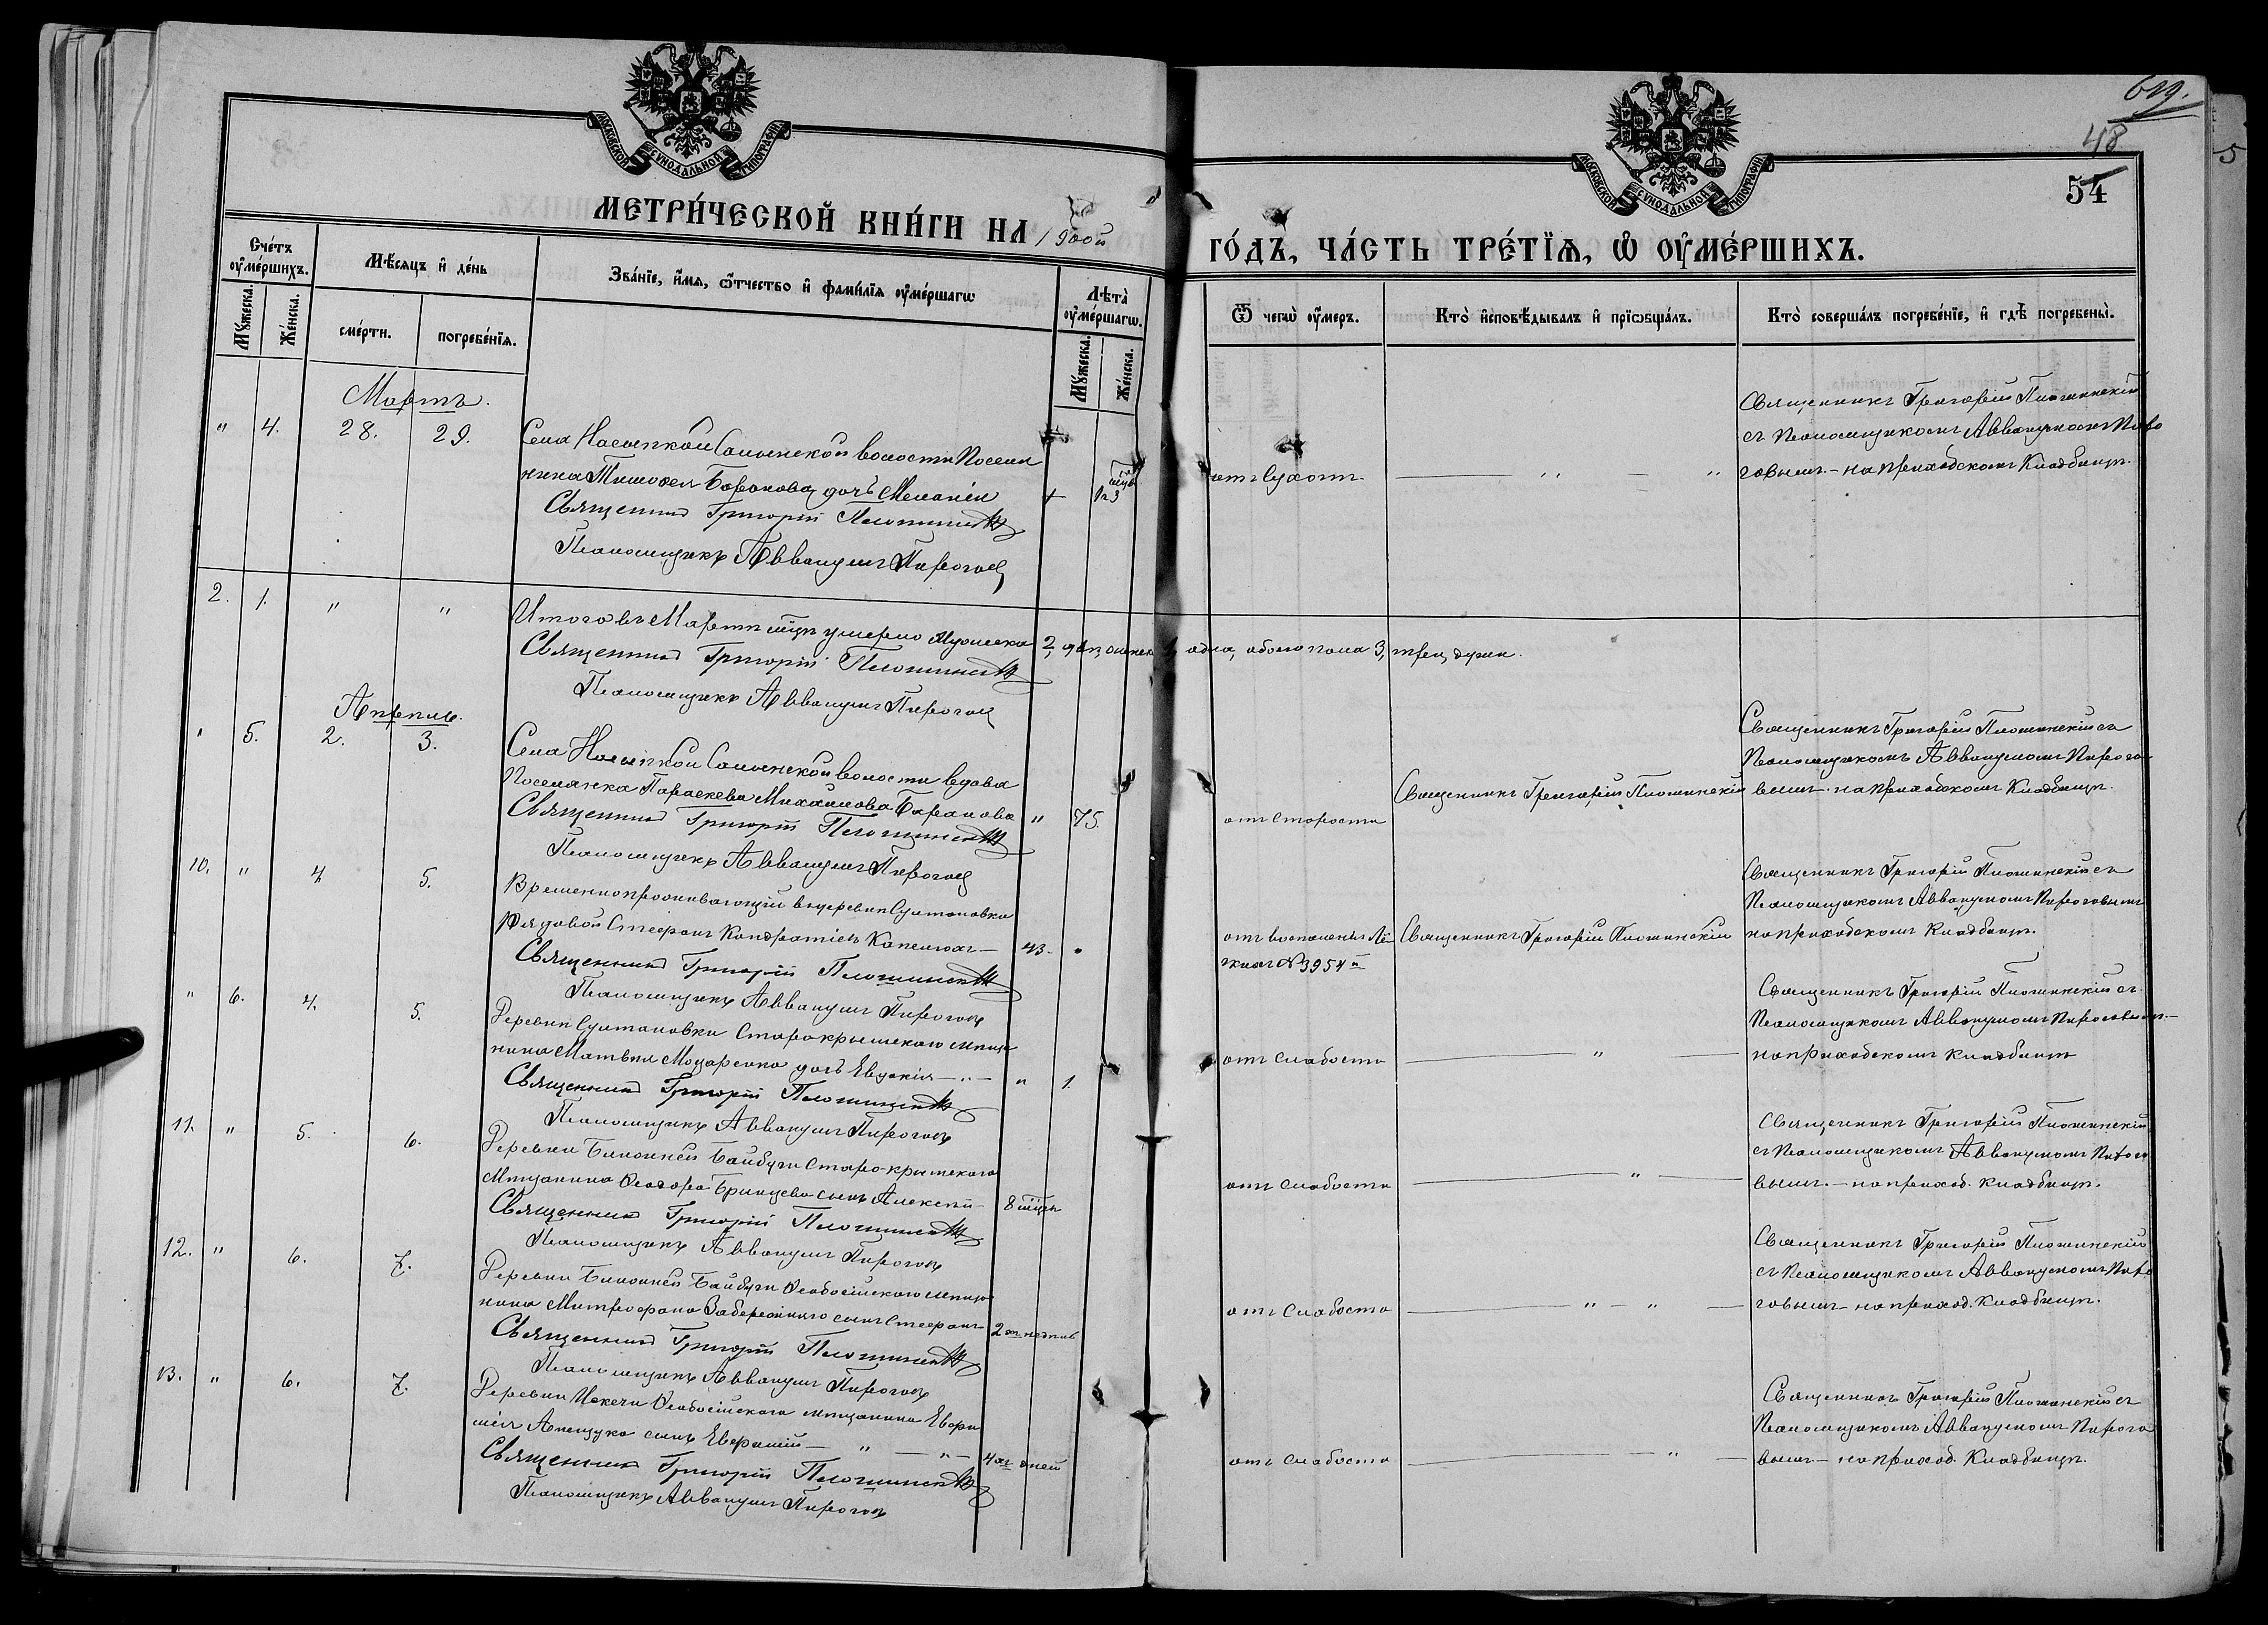 619.
48
54
5
МОСКОВСКОЙ СѴНОДАЛЬНОЙ ТИПОГРАФІИ
МОСКОВСКОЙ СѴНОДАЛЬНОЙ ТИПОГРАФІИ
МЕТРИ́ЧЕСКОЙ КНИ́ГИ НА 1900й ГО́ДЪ, ЧА́СТЬ ТРЕ́ТЇѦ, Ѡ҆ ОУ҆МЕ́РШИХЪ.
Сче́тъ оу҆ме́ршихъ.
Мꙋ́жеска.
Же́нска.
Мѣ́сяцъ и҆ де́нь
сме́рти.
погребе́нїѧ.
Зва́нїе, и҆́мѧ, ѻ҆́тчество и҆ фами́лїѧ оу҆ме́ршагѡ
Лѣта̀ оу҆ме́ршагѡ.
Мꙋ́жеска.
Же́нска.
Ѿ чегѡ̀ оу҆́меръ.
Кто̀ и҆сповѣ́дывалъ и҆ прїѡбща́лъ.
Кто̀ соверша́лъ погребе́нїе, и҆ гдѣ̀ погребены̀.
Мартъ.
" 4. 28. 29. Села Насыпкой Салынской волости Поселя
нина Тимофея Баранова дочь Меланія
Священникъ Григорій Плотинскій
Псаломщикъ Аввакумъ Пироговъ
отъ Сухотъ
Священникъ Григорій Плотинскій
съ Псаломщикомъ Аввакумомъ Пиро
говымъ - на приходскомъ Кладбищѣ.
2. 1. " " Итого въ Мартѣ мцѣ умерло мужеска 2, два, женска 1, одна, обоего пола 3, три, души.
Священникъ Григорій Плотинскій
Псаломщикъ Аввакумъ Пироговъ
Апрѣль.
" 5. 2. 3. Села Насыпкой Салынской волости вдова
Поселянка Параскева Михайлова Баранова " 75.
Священникъ Григорій Плотинскій
Псаломщикъ Аввакумъ Пироговъ
отъ Старости
Священникъ Григорій Плотинскій
Священникъ Григорій Плотинскій съ
Псаломщикомъ Аввакумомъ Пирого
вымъ - на приходскомъ Кладбищѣ.
10. " 4. 5. Временнопроживающій въ деревнѣ Султановки
Рядовой Стефанъ Кондратіевъ 43.
Священникъ Григорій Плотинскій
Псаломщикъ Аввакумъ Пироговъ
отъ воспаленія Лё
гкихъ № 3954й
Священникъ Григорій Плотинскій
Священникъ Григорій Плотинскій съ
Псаломщикомъ Аввакумомъ Пироговымъ
на приходскомъ Кладбищѣ.
" 6. 4. 5. Деревни Султановки Старокрымскаго мѣща
нина Матвѣя дочь Евдокія " 1.
Священникъ Григорій Плотинскій
Псаломщикъ Аввакумъ Пироговъ
отъ слабости "
Священникъ Григорій Плотинскій съ
Псаломщикомъ Аввакумомъ Пироговымъ
на приходскомъ кладбищѣ
11. " 5. 6. Деревни Ближней Байбуги Старокрымскаго
Мѣщанина Ѳеодора Бринцева сынъ Алексѣй - 8 мцвъ
Священникъ Григорій Плотинскій
Псаломщикъ Аввакумъ Пироговъ
отъ слабости "
Священникъ Григорій Плотинскій
съ Псаломщикомъ Аввакумомъ Пирого
вымъ. - на приход. Кладбищѣ.
12. " 6. 7. Деревни Ближней Байбуги Ѳеодосійскаго мѣща
нина Митрофана Забережнаго сынъ Стефанъ 2хъ недѣль
Священникъ Григорій Плотинскій
Псаломщикъ Аввакумъ Пироговъ
отъ Слабости " - "
Священникъ Григорій Плотинскій
съ Псаломщикомъ Аввакумомъ Пиро
говымъ на приход. Кладбищѣ.
13. " 6. 7. Деревни Ѳеодосійскаго мѣщанина Евфи
мія сынъ Евфимій - " - " - 4хъ дней
Священникъ Григорій Плотинскій
Псаломщикъ Аввакумъ Пироговъ
отъ слабости "
Священникъ Григорій Плотинскій съ
Псаломщикомъ Аввакумомъ Пирого
вымъ - на приход. Кладбищѣ.